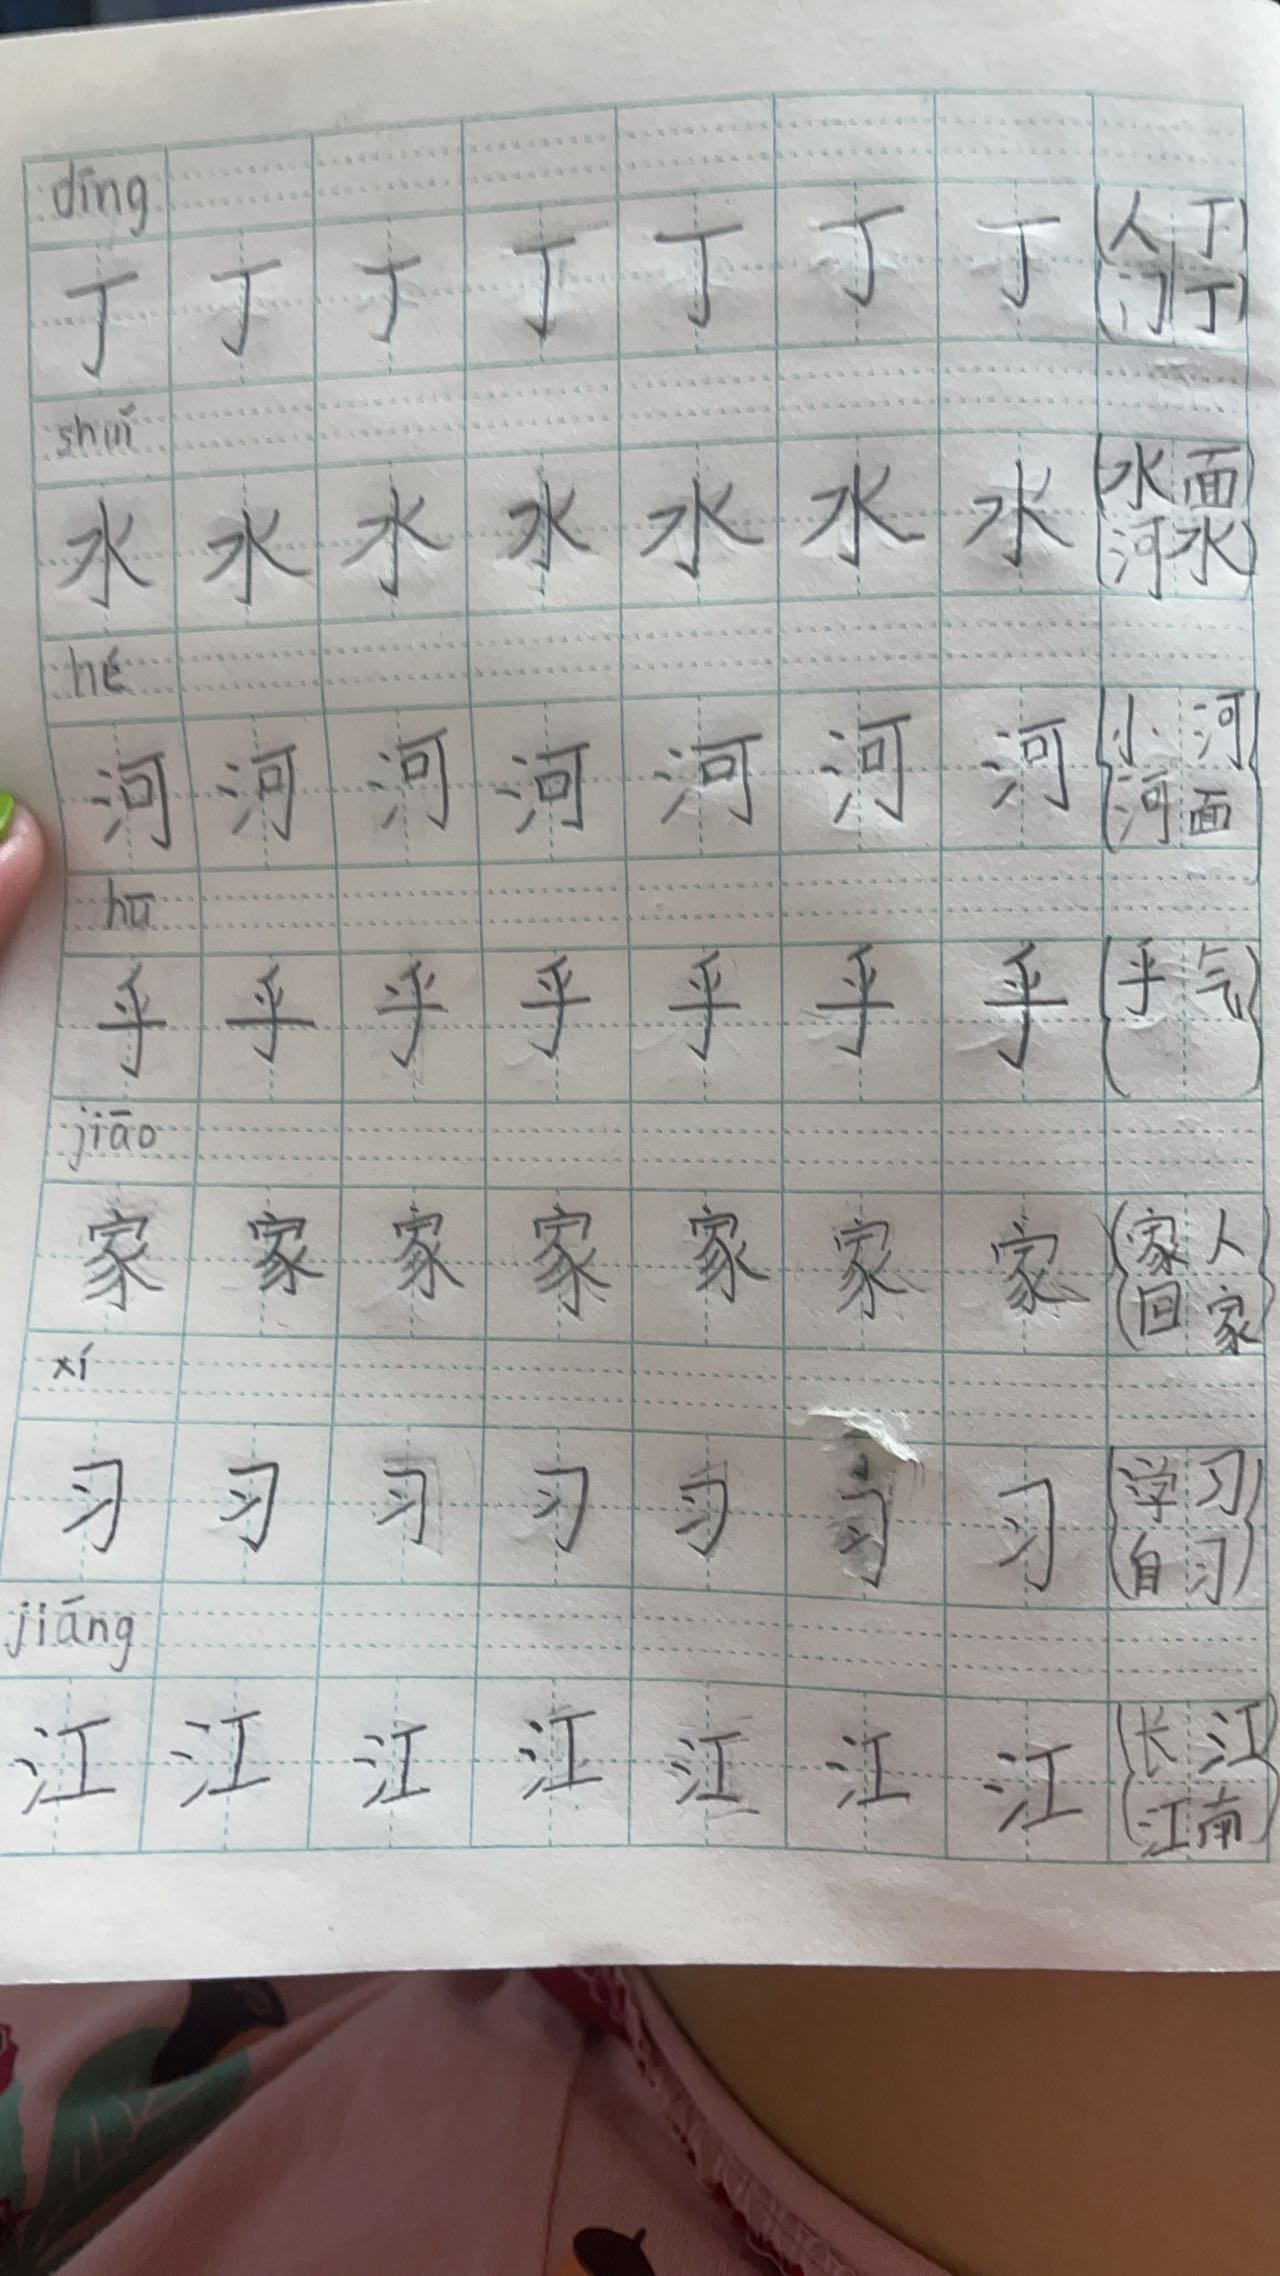 dīng
丁 丁 丁 丁 丁 丁 丁 人丁
门丁
shuí
水 水 水 水 水 水 水 水面
河水
hé
河 河 河 河 河 河 河 小河
河面
hū
乎 乎 乎 乎 乎 乎 乎 乎气
jiāo
家 家 家 家 家 家 家 家人
回家
xí
习 习 习 习 习 习 习 学习
自习
jiāng
江 江 江 江 江 江 江 长江
江南